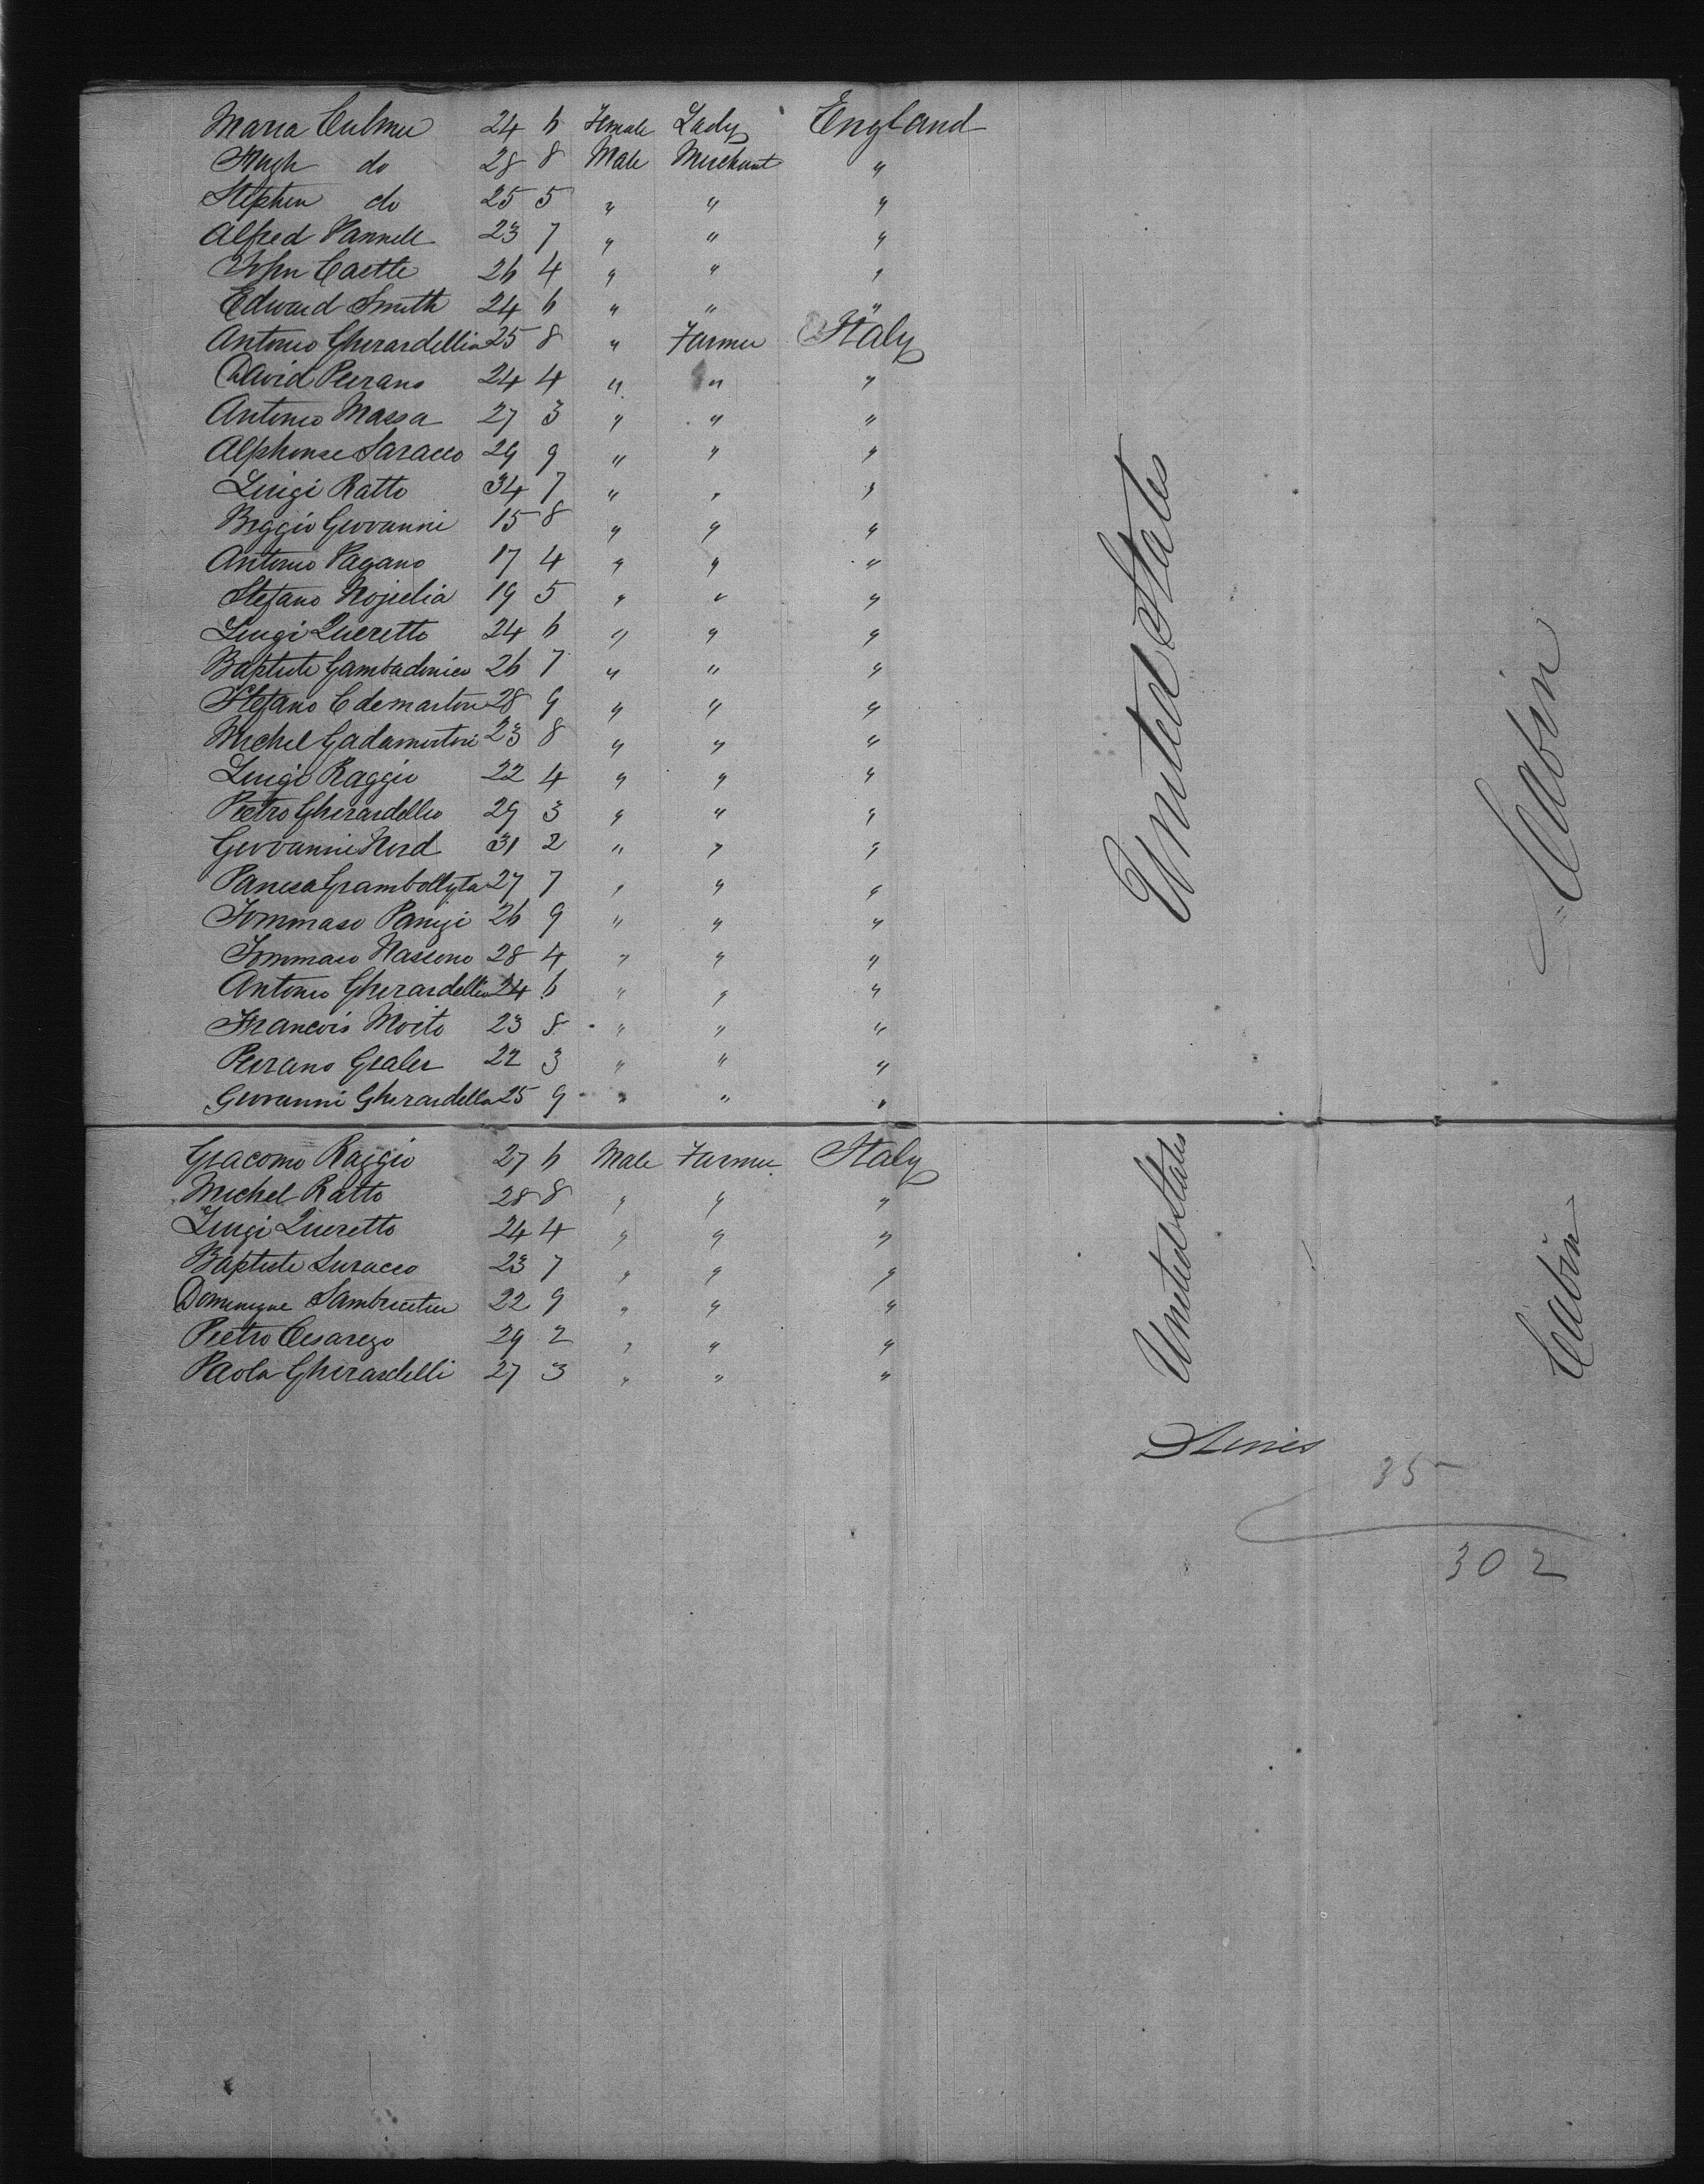 Maria Culmer 24 6 Female Lady England
Hugh do 28 8 Male Merchant "
Stephen do 25 5 " " "
Alfred Pannell 23 7 " " "
John Castle 26 4 " " "
Edward Smith 24 6 " " "
Antonio Gherardellia 25 8 " Farmer Italy
David Peirano 24 4 " " "
Antonio Massa 27 3 " " "
Alphonse Saracco 29 9 " " "
Luigi Ratto 34 7 " " "
Beggio Giovanni 15 8 " " "
Antonio Pagano 17 4 " " "
Stefano 19 5 " " "
Luigi Queretto 24 6 " " "
Baptiste Gambadonico 26 7 " " "
Stefano Cdemartini 28 9 " " "
Michel Gadamertini 23 8 " " "
Luigi Raggio 22 4 " " "
Pietro Gherardello 29 3 " " "
Giovanni 31 2 " " "
27 7 " " "
Tommaso 26 9 " " "
Tommaso Nascono 28 4 " " "
Antonio Gherardellia 24 6 " " "
Francois Mosto 23 8 " " "
Peirano 22 3 " " "
Giovanni Gherardella 25 9 " " "
United States
Cabin
Giacomo Raggio 27 6 Male Farmer Italy
Michel Ratto 28 8 " " "
Luigi Queretto 24 4 " " "
Baptiste Suracco 23 7 " " "
Dominique 22 9 " " "
Pietro Cesarego 29 2 " " "
Paola Gherardelli 27 3 " " "
United States
Cabin
35
302